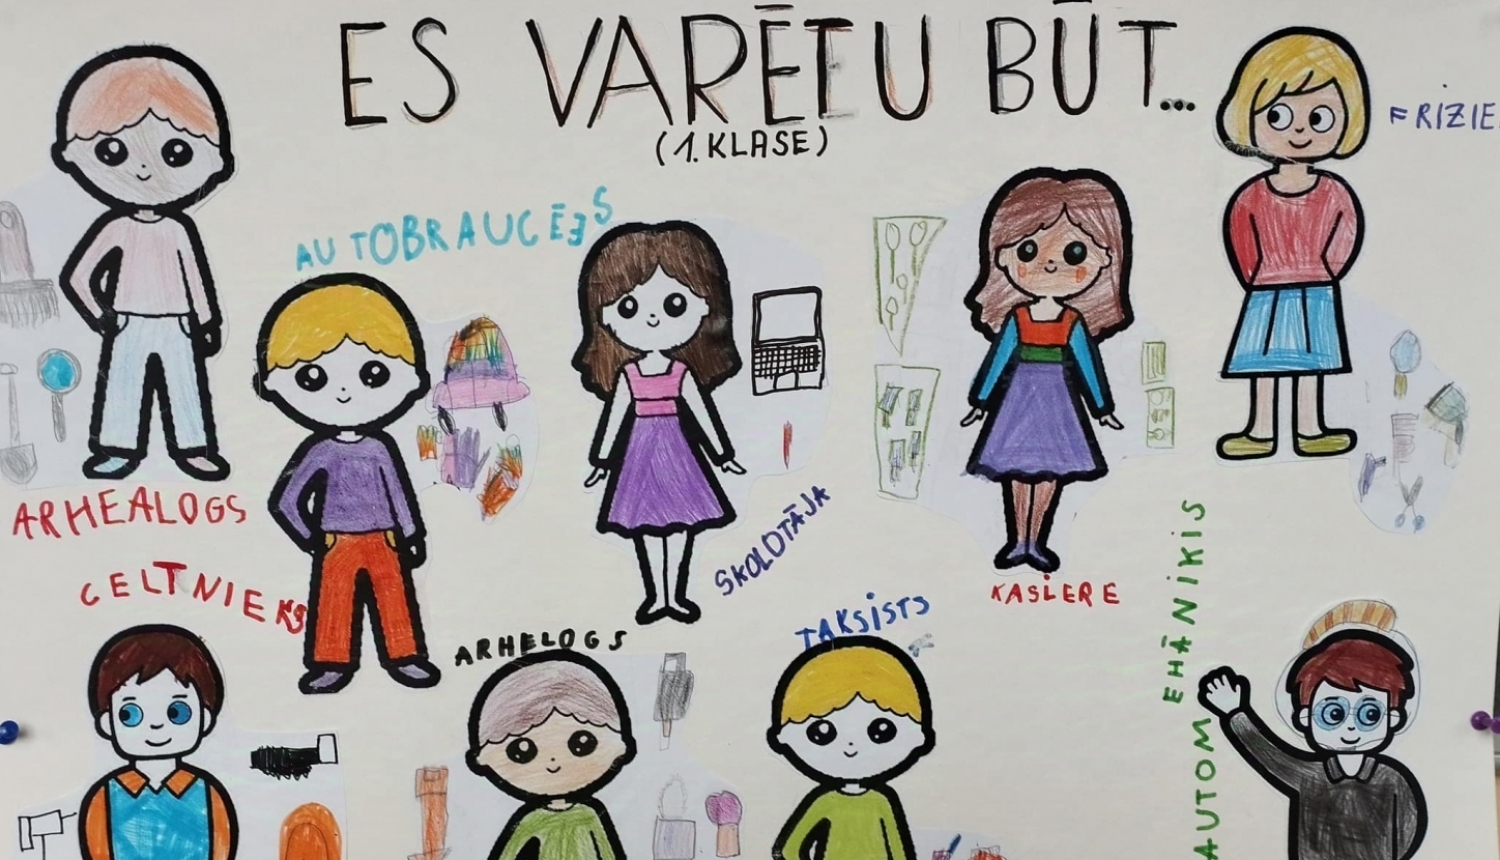 ES VARĒTU BŪT...
(1. KLASE)
FRIZIE
AUTOBRAUCĒJS
ARHEALOGS
SKOLOTĀJA
KASIERE
CELTNIEKS
ARHELOGS
TAKSISTS
AUTOMEHĀNIĶIS